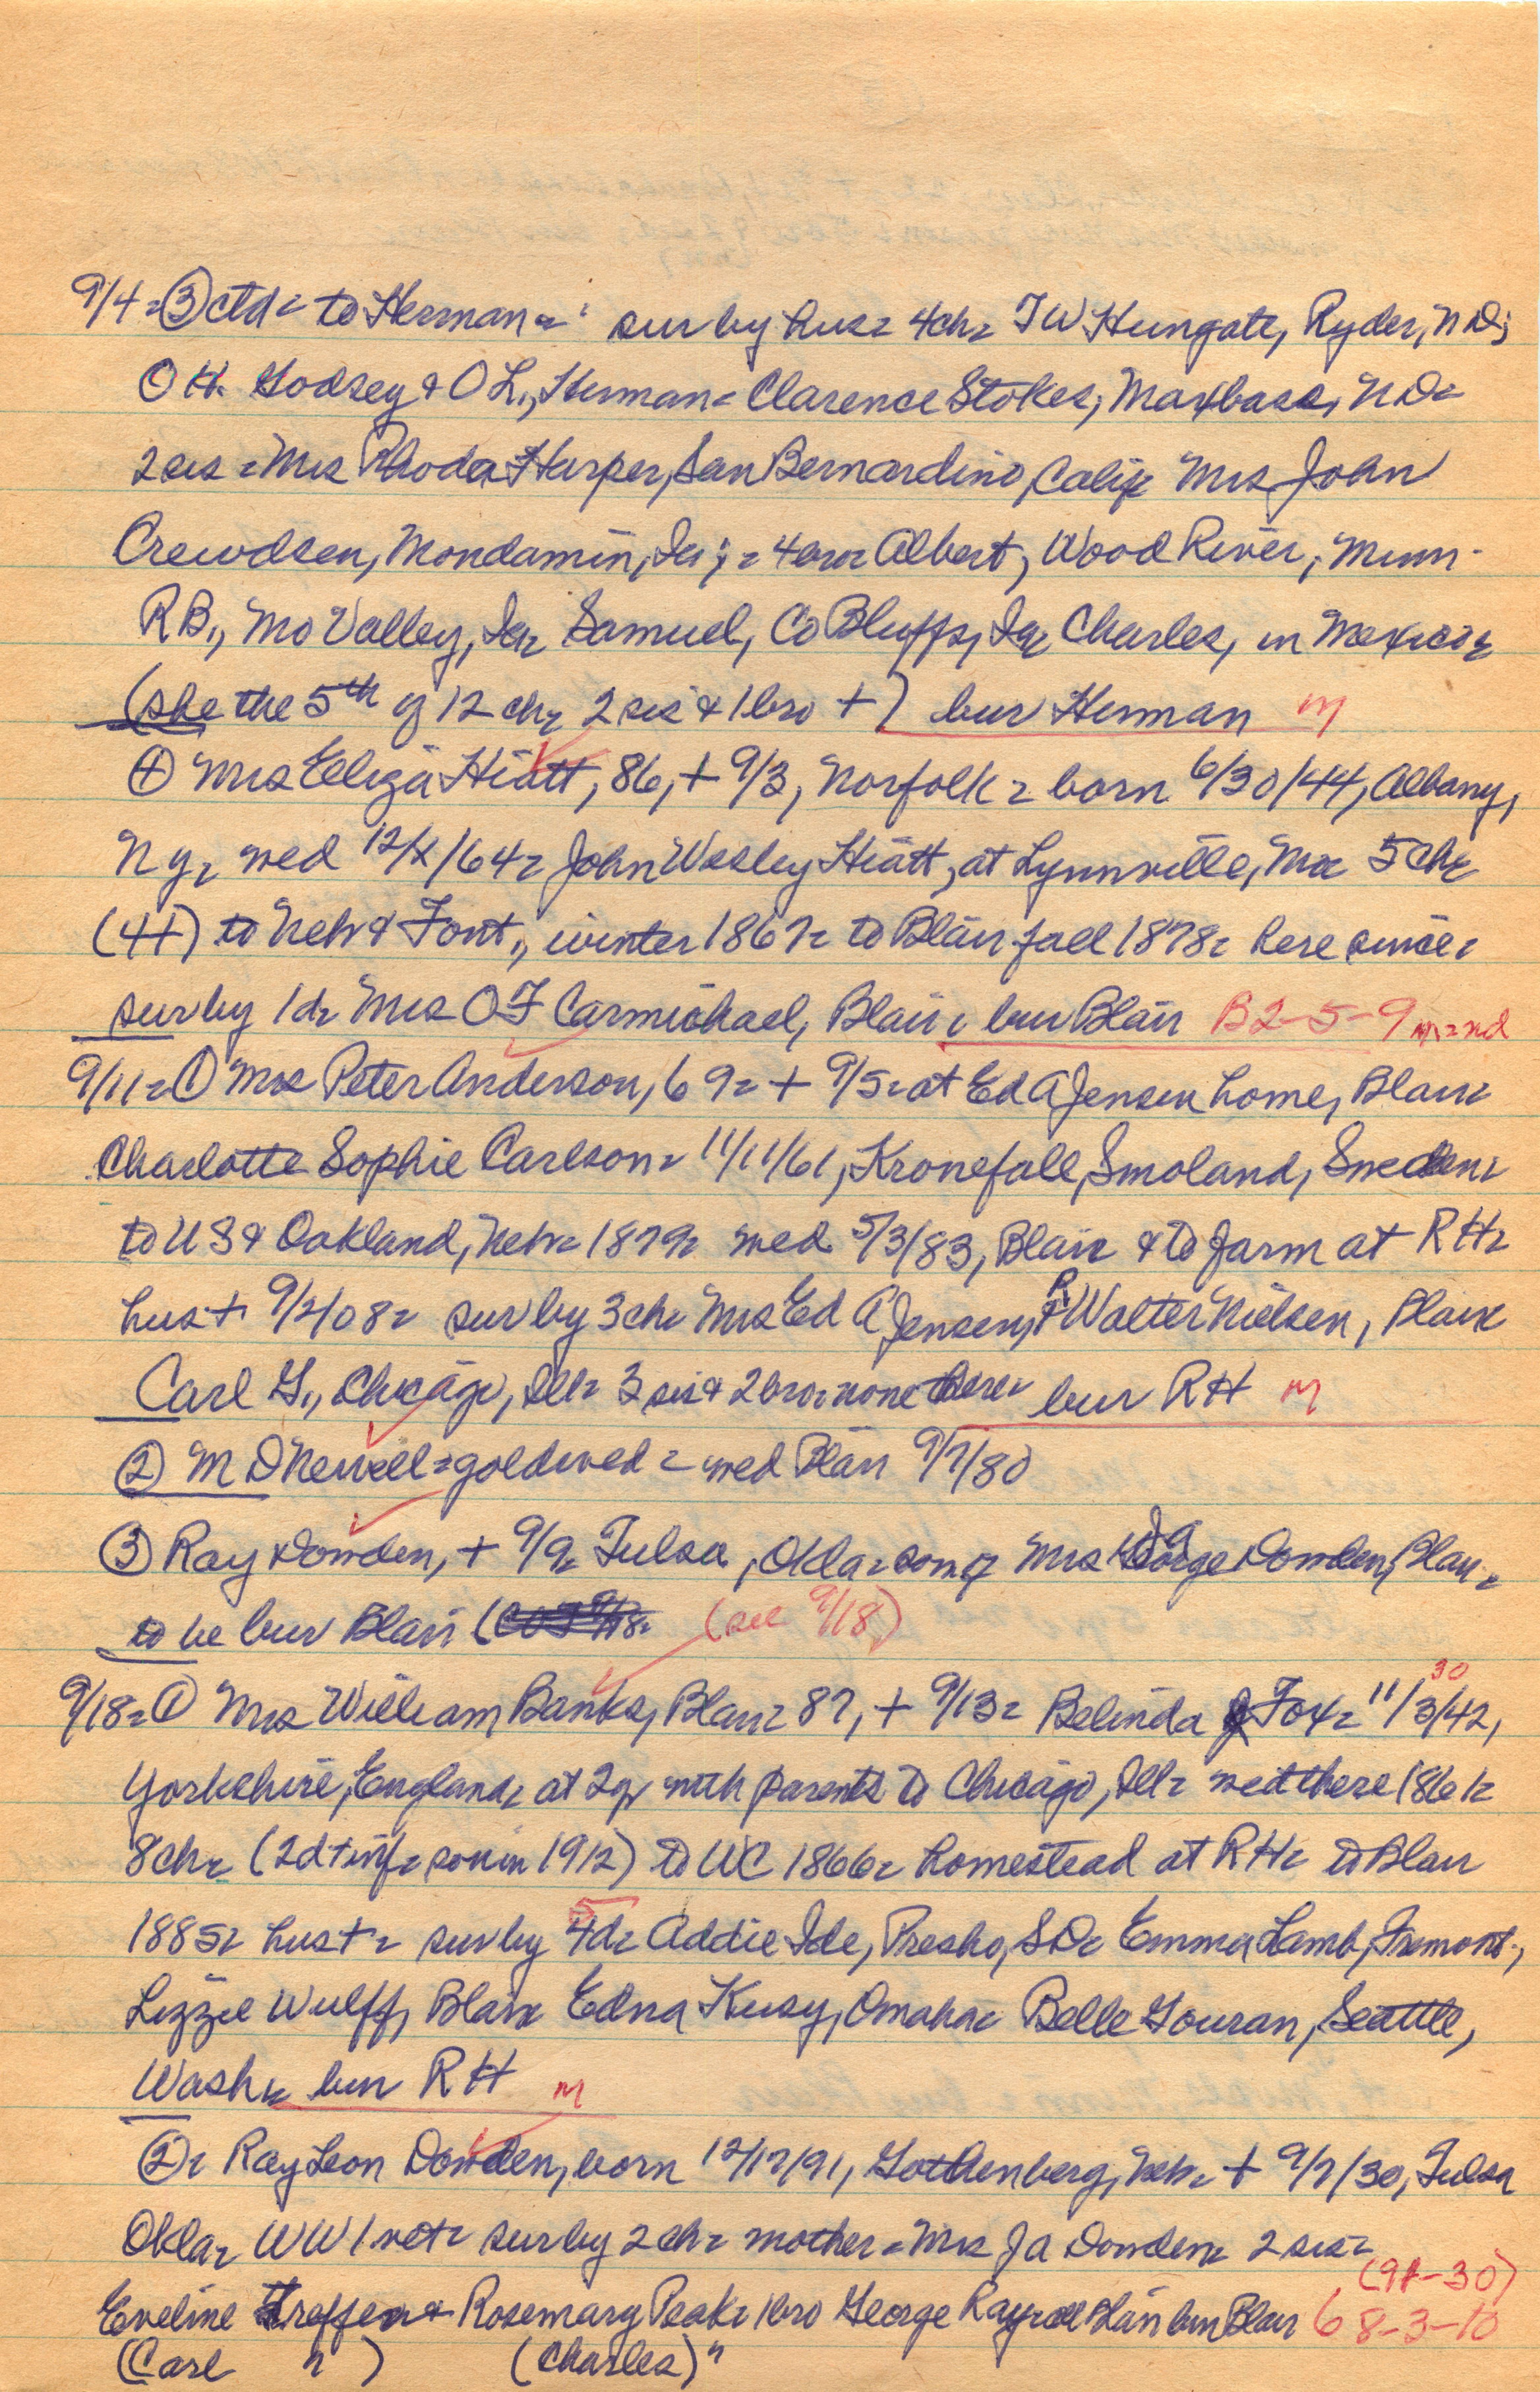 9/4 = ③ ctd = to Herman = sur by hus = 4ch = TW Hungate, Ryder, ND;
OH. Godsey & OL., Herman = Clarence Stokes, Maxbass, ND =
2 sis = Mrs Rhoda Harper, San Bernardino, Calif = Mrs John
Crewdsen, Mondamin, Ia; = 4 bro = Albert, Wood River, Minn.
RB., Mo Valley, Ia = Samuel, Co Bluffs, Ia = Charles, in Mexico =
(she the 5th of 12 ch = 2 sis & 1 bro +) bur Herman M
④ Mrs Eliza Hiatt, 86, + 9/3, Norfolk = born 6/30/44, Albany,
NY = wed 12/X/64 = John Wesley Hiatt, at Lynnville, = 5 ch =
(4+) to Neb & Font., winter 1867 = to Blair fall 1878 = here since =
sur by 1 d = Mrs OF Carmichael, Blair = bur Blair B2-5-9 M = nd
9/11 = ① Mrs Peter Anderson, 69 = + 9/5 = at Ed A Jensen home, Blair =
Charlotte Sophie Carlson = 11/11/61, Kronefall, Smoland, Sweden =
to US & Oakland, Neb = 1879 = wed 5/3/83, Blair & to farm at RH =
hus + 9/2/08 = sur by 3 ch = Mrs Ed A Jensen, & P. Walter Nielsen, Blair
Carl G., Chicago, Ill = 3 sis & 2 bro = none here = bur RH M
② M D Newell = gold wed = wed Blair 9/7/80
③ Ray Dowden, + 9/9 = Tulsa, Okla = son of Mrs JA Dowden, Blair =
to be bur Blair (see 9/18)
9/18 = ① Mrs William Banks, Blair = 87, + 9/13 = Belinda Fox = 11/30/42,
Yorkshire, England = at 2 yr with parents to Chicago, Ill = wed there 1861 =
8 ch = (2 d + inf = son in 1912) to WC 1866 = homestead at RH = to Blair
1885 = hus + = sur by 5 d = Addie Ide, Presho, SD = Emma Lamb, Fremont,
Lizzie Wulff, Blair = Edna Kusy, Omaha = Belle Gouran, Seattle,
Wash = bur RH M
② = Ray Leon Dowden, born 12/17/91, Gothenberg, Neb = + 9/7/30, Tulsa
Okla = WW1 vet = sur by 2 ch = mother = Mrs JA Dowden = 2 sis =
(91-30)
Eveline Treffer & Rosemary Peak = 1 bro George Ray = all Blair bur Blair 68-3-10
(Carl " ) (Charles) "